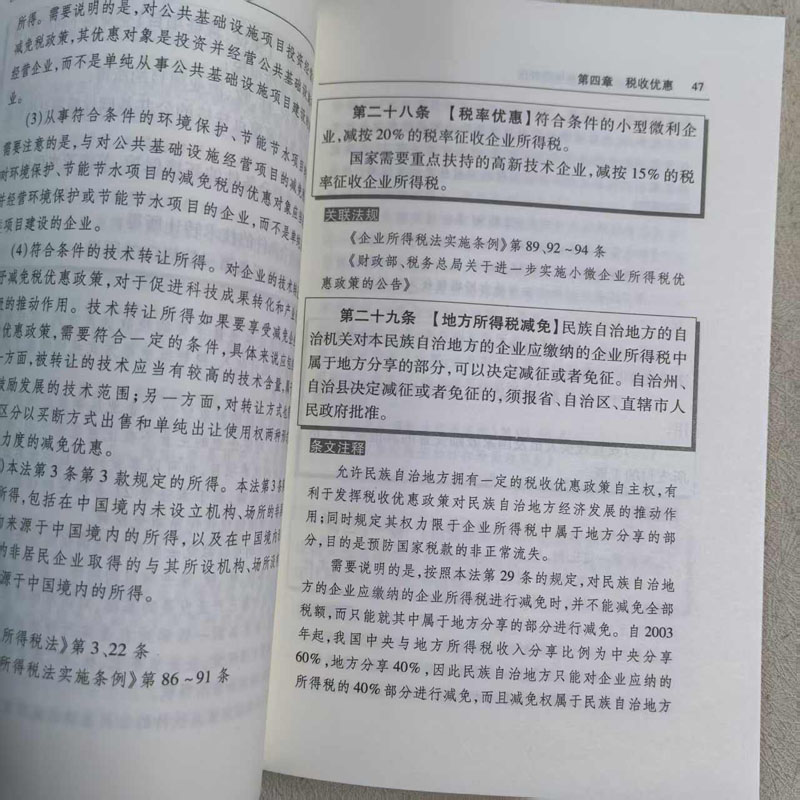 所得。需要说明的是,对公共基础设施项目投资经
减免税政策,其优惠对象是投资并经营公共基础设
经营企业,而不是单纯从事公共基础设施项目建设
业。
(3)从事符合条件的环境保护、节能节水项目的
需要注意的是,与对公共基础设施经营项目的减免
对环境保护、节能节水项目的减免税的优惠对象应
并经营环境保护或节能节水项目的企业,而不是单
项目建设的企业。
(4)符合条件的技术转让所得。对企业的技术
于减免税优惠政策,对于促进科技成果转化和产
的推动作用。技术转让所得如果要享受减免
优惠政策,需要符合一定的条件,具体来说应
一方面,被转让的技术应当有较高的技术含量,
鼓励发展的技术范围;另一方面,对转让方式
区分以买断方式出售和单纯出让使用权两种
力度的减免优惠。
)本法第3条第3款规定的所得。本法第3
所得,包括在中国境内未设立机构、场所的
来源于中国境内的所得,以及在中国境内
的非居民企业取得的与其所设机构、场所
源于中国境内的所得。
所得税法》第3、22条
所得税法实施条例》第86~91条
第四章 税收优惠 47
第二十八条 【税率优惠】符合条件的小型微利企
业,减按20%的税率征收企业所得税。
国家需要重点扶持的高新技术企业,减按15%的税
率征收企业所得税。
关联法规
《企业所得税法实施条例》第89、92~94条
《财政部、税务总局关于进一步实施小微企业所得税优
惠政策的公告》
第二十九条 【地方所得税减免】民族自治地方的自
治机关对本民族自治地方的企业应缴纳的企业所得税中
属于地方分享的部分,可以决定减征或者免征。自治州、
自治县决定减征或者免征的,须报省、自治区、直辖市人
民政府批准。
条文注释
允许民族自治地方拥有一定的税收优惠政策自主权,有
利于发挥税收优惠政策对民族自治地方经济发展的推动作
用;同时规定其权力限于企业所得税中属于地方分享的部
分,目的是预防国家税款的非正常流失。
需要说明的是,按照本法第29条的规定,对民族自治地
方的企业应缴纳的企业所得税进行减免时,并不能减免全部
税额,而只能就其中属于地方分享的部分进行减免。自2003
年起,我国中央与地方所得税收入分享比例为中央分享
60%,地方分享40%,因此民族自治地方只能对企业应纳的
所得税的40%部分进行减免,而且减免权属于民族自治地方